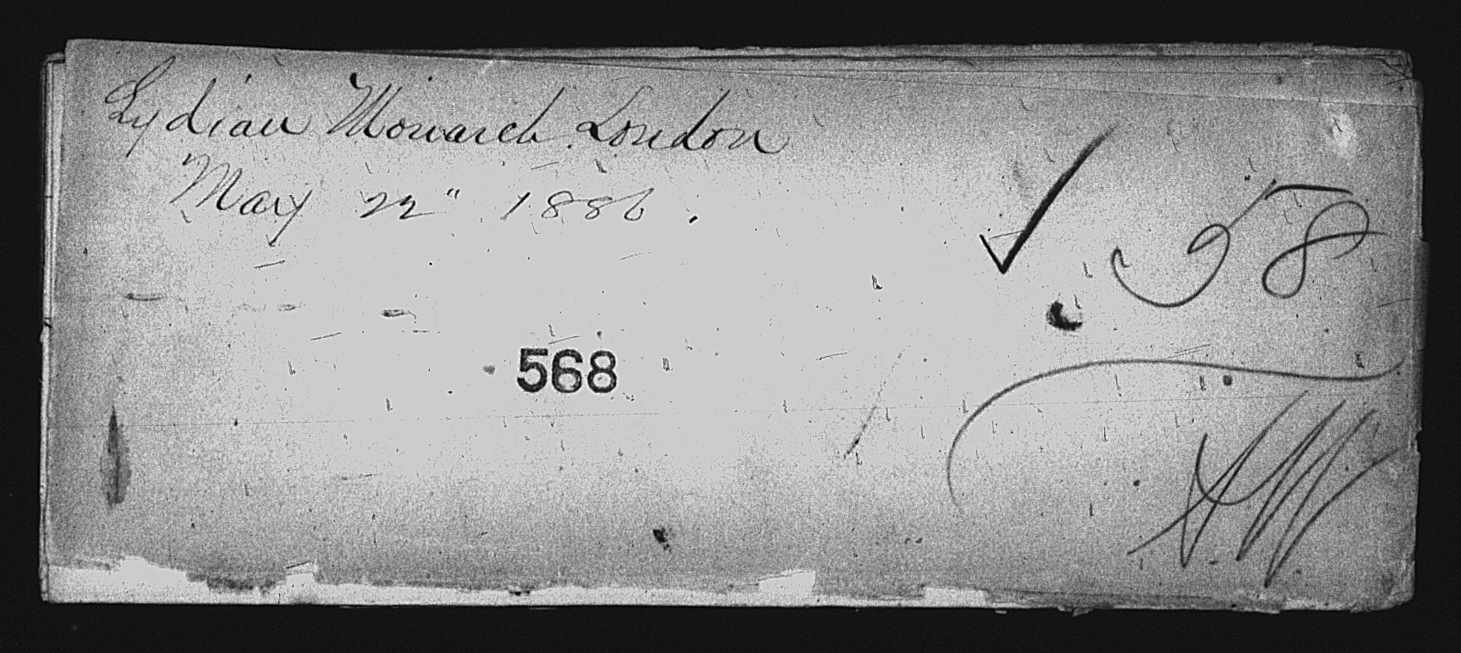 Lydian Monarch London
May 22" 1886.
58
568